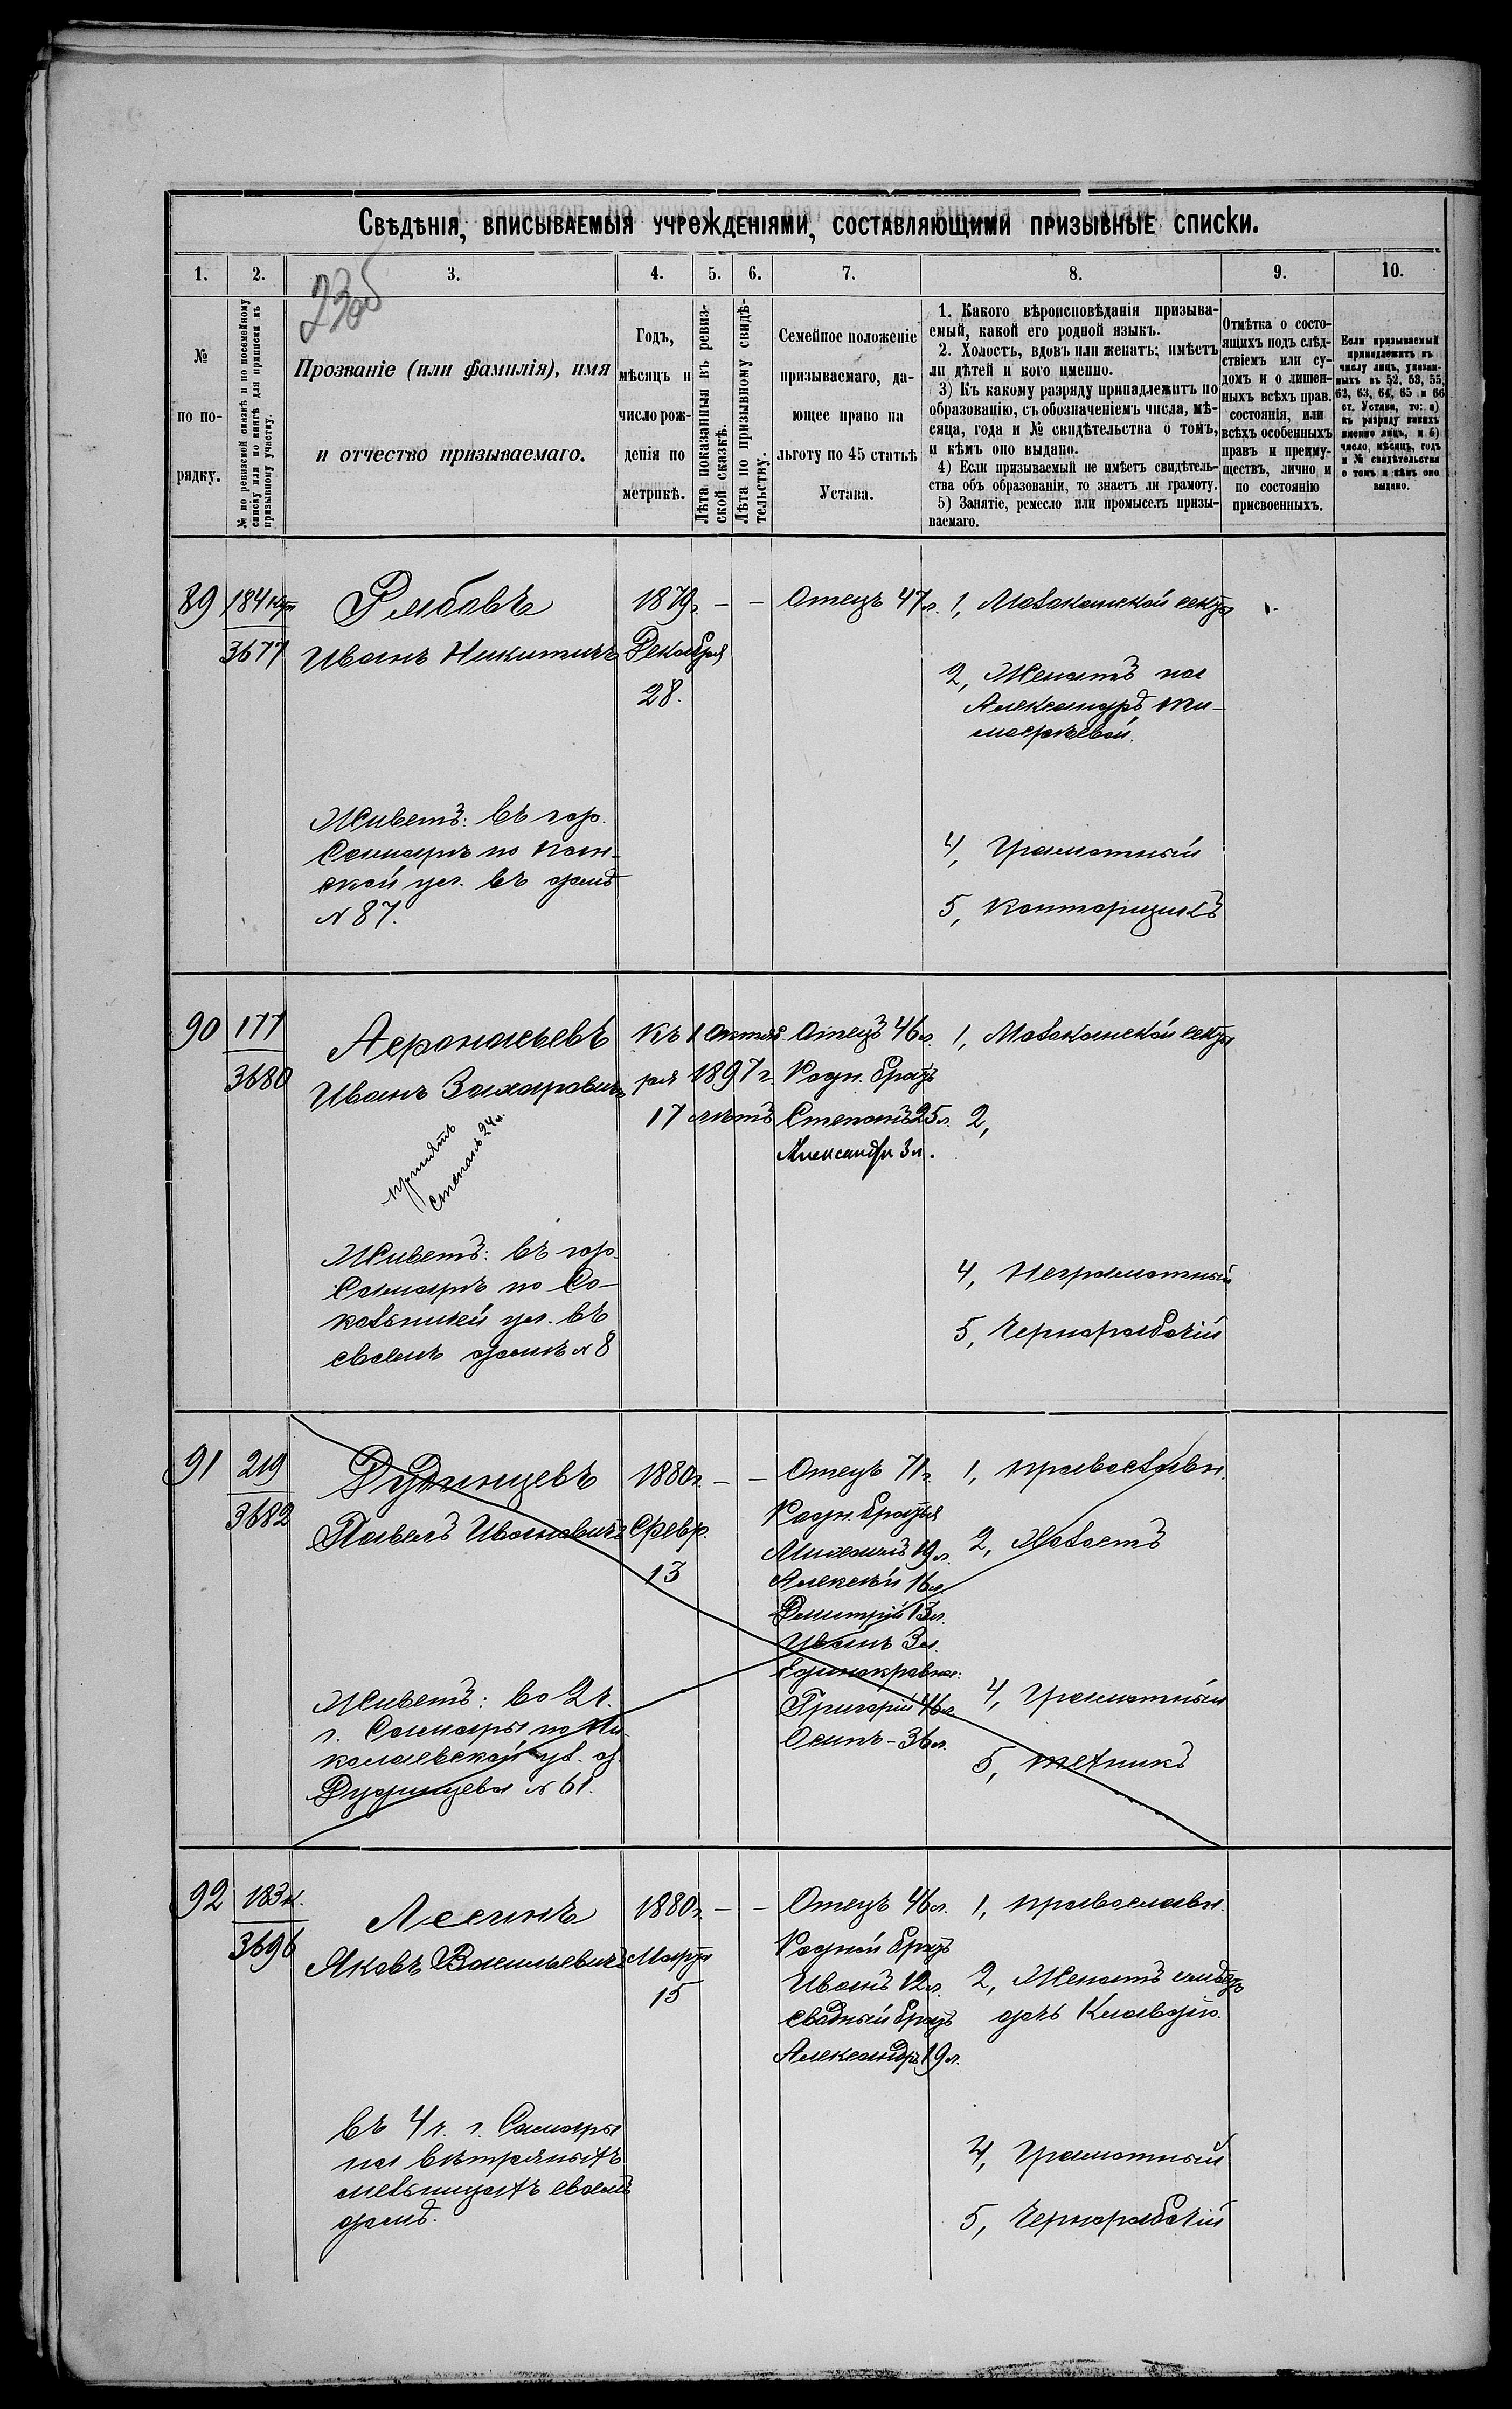 Свѣдѣнія, вписываемыя учрежденіями, составляющими призывные списки.
1. 2. 3. 4. 5. 6. 7. 8. 9. 10.
23об
№
по по-
рядку.
№ по ревизской сказкѣ и по посемейному
списку или по книгѣ для приписки къ
призывному участку.
Прозваніе (или фамилія), имя
и отчество призываемаго.
Годъ,
мѣсяцъ и
число рож-
денія по
метрикѣ.
Лѣта показанныя въ ревиз-
ской сказкѣ.
Лѣта по призывному свидѣ-
тельству.
Семейное положеніе
призываемаго, да-
ющее право на
льготу по 45 статьѣ
Устава.
1. Какого вѣроисповѣданія призыва-
емый, какой его родной языкъ.
2. Холостъ, вдовъ или женатъ; имѣетъ
ли дѣтей и кого именно.
3) Къ какому разряду принадлежитъ по
образованію, съ обозначеніемъ числа, мѣ-
сяца, года и № свидѣтельства о томъ,
и кѣмъ оно выдано.
4) Если призываемый не имѣетъ свидѣтель-
ства объ образованіи, то знаетъ ли грамоту.
5) Занятіе, ремесло или промыселъ призы-
ваемаго.
Отмѣтка о состо-
ящихъ подъ слѣд-
ствіемъ или су-
домъ и о лишен-
ныхъ всѣхъ прав.
состоянія, или
всѣхъ особенныхъ
правъ и преиму-
ществъ, лично и
по состоянію
присвоенныхъ.
Если призываемый
принадлежитъ къ
числу лицъ, указан-
ныхъ въ 52, 53, 55,
62, 63, 64, 65 и 66
ст. Устава, то: а)
къ разряду какихъ
именно лицъ, и б)
число, мѣсяцъ, годъ
и № свидѣтельства
о томъ и кѣмъ оно
выдано.
89
184
3677
Рябовъ
Иванъ Никитичъ
Живетъ: въ гор.
Самарѣ по
ской ул. въ домѣ
№ 87.
1879г.
Декабря
28.
— —
Отецъ 47л.
1, Молоканской секты
2, Женатъ на
Александрѣ Ти-
мофѣевой.
4, Грамотный
5, Конторщикъ
90
177
3680
Афонасьевъ
Иванъ Захаровичъ
принятъ
Степанъ 24л.
Живетъ: въ гор.
Самарѣ по Со-
кольничей ул. въ
своемъ домѣ № 8
Къ 1 Октяб-
ря 1897 г.
17 лѣтъ
Отецъ 46л.
Родн. братъ
Степанъ 25л.
Александръ 3л.
1, Молоканской секты
2,
4, Неграмотный
5, Чернорабочій
91
219
3682
Рудинцевъ
Павелъ Ивановичъ
Живетъ: во 2 ч.
г. Самары по Ни-
колаевской ул. д.
Рудинцева № 61.
1880г.
Февр.
13
— —
Отецъ 71г.
Родн. братья
Михаилъ 19л.
Алексѣй 16л.
Димитрій 13л.
Иванъ 3л.
Единокровные:
Григорій 46л.
Осипъ - 36л.
1, Православн.
2, Холостъ
4, Грамотный
5,
92
183 к.
3696
Лесинъ
Яковъ Васильевичъ
въ 4 ч. г. Самары
на вѣтряныхъ
мельницахъ своемъ
домѣ.
1880г.
Марта
15
— —
Отецъ 46л.
Родной братъ
Иванъ 12л.
сводный братъ
Александръ 19л.
1, Православн.
2, Женатъ имѣетъ
дочь Клавдію.
4, Грамотный
5, Чернорабочій